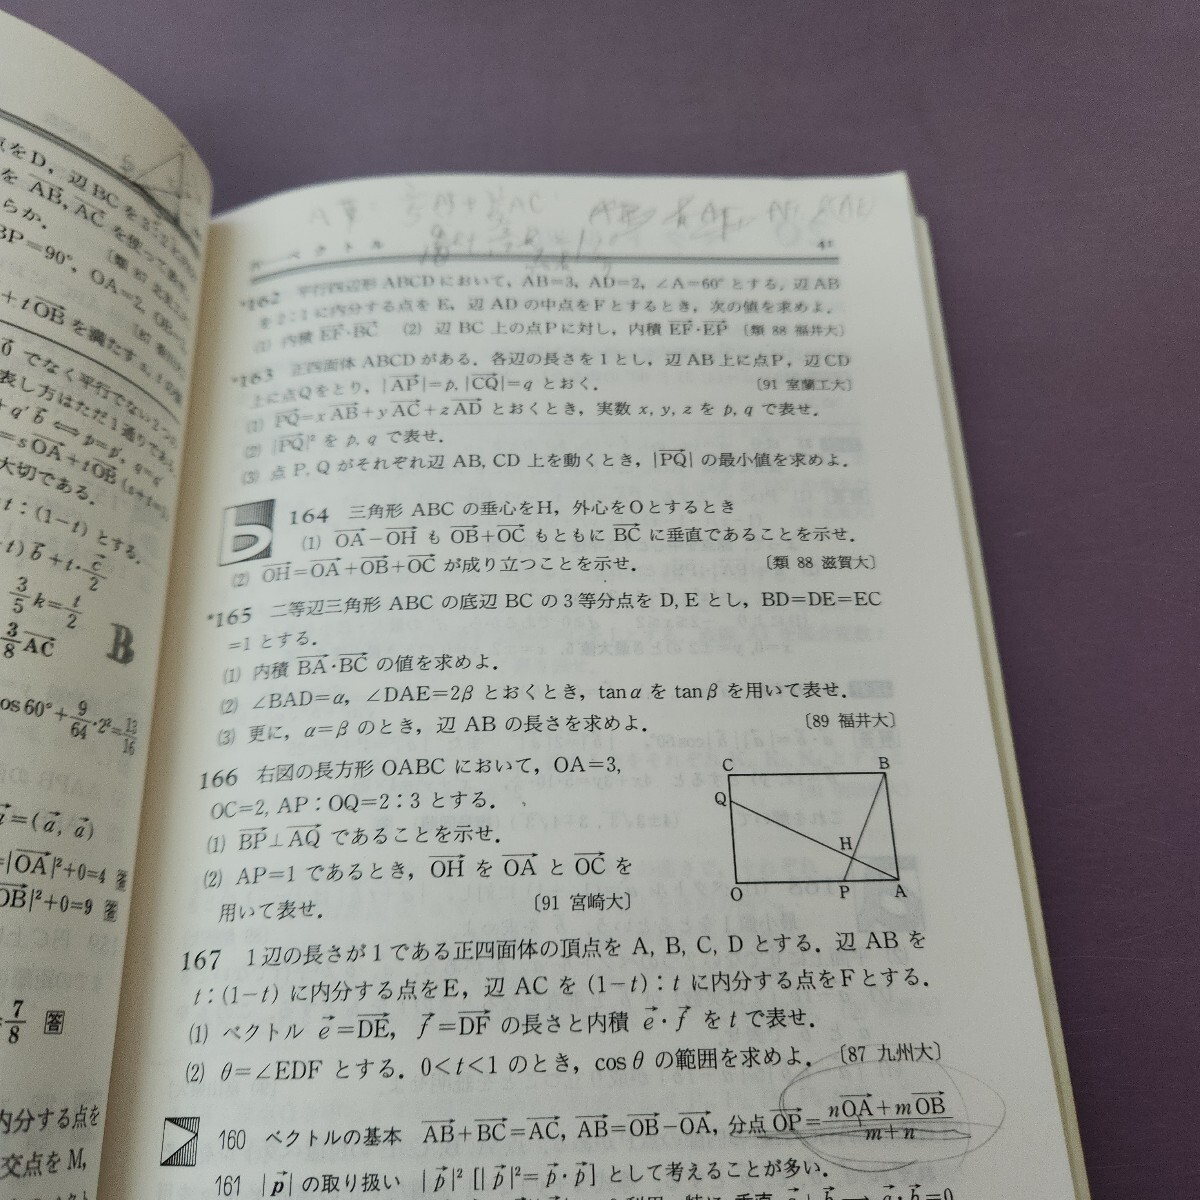 点をD，辺BCを3:2
を AB, AC を使って表せ．
らか．
BP=90°，OA=2，OB=
+tOB を満たす
0 でなく平行でない2つの
表し方はただ1通りである
+q'b ⟺ p=p', q=q'
=sOA+tOB (s+t=1)
大切である．
t：(1−t) とする．
t)b+t・c/2
3/5 k=t/2
3/8 AC
B
cos60°+9/64・2²=13/16
a=(a, a)
=|OA|²+0=4 答
OB|²+0=9 答
=7/8 答
内分する点を
交点をM，
ベクトル 41
*162 平行四辺形 ABCD において，AB=3，AD=2，∠A=60° とする．辺 AB
を 2：1 に内分する点を E，辺 AD の中点を F とするとき，次の値を求めよ．
(1) 内積 EF・BC (2) 辺 BC 上の点 P に対し，内積 EF・EP 〔類 88 福井大〕
*163 正四面体 ABCD がある．各辺の長さを 1 とし，辺 AB 上に点 P，辺 CD
上に点 Q をとり，|AP|=p, |CQ|=q とおく． 〔91 室蘭工大〕
(1) PQ=xAB+yAC+zAD とおくとき，実数 x, y, z を p, q で表せ．
(2) |PQ|² を p, q で表せ．
(3) 点 P, Q がそれぞれ辺 AB, CD 上を動くとき，|PQ| の最小値を求めよ．
164 三角形 ABC の垂心を H，外心を O とするとき
(1) OA−OH も OB+OC もともに BC に垂直であることを示せ．
(2) OH=OA+OB+OC が成り立つことを示せ． 〔類 88 滋賀大〕
*165 二等辺三角形 ABC の底辺 BC の 3 等分点を D, E とし，BD=DE=EC
=1 とする．
(1) 内積 BA・BC の値を求めよ．
(2) ∠BAD=α，∠DAE=2β とおくとき，tanα を tanβ を用いて表せ．
(3) 更に，α=β のとき，辺 AB の長さを求めよ． 〔89 福井大〕
166 右図の長方形 OABC において，OA=3，
OC=2, AP：OQ=2：3 とする．
(1) BP⊥AQ であることを示せ．
(2) AP=1 であるとき，OH を OA と OC を
用いて表せ． 〔91 宮崎大〕
C B
Q
H
O P A
167 1辺の長さが 1 である正四面体の頂点を A, B, C, D とする．辺 AB を
t：(1−t) に内分する点を E，辺 AC を (1−t)：t に内分する点を F とする．
(1) ベクトル e=DE，f=DF の長さと内積 e・f を t で表せ．
(2) θ=∠EDF とする．0<t<1 のとき，cosθ の範囲を求めよ．〔87 九州大〕
160 ベクトルの基本 AB+BC=AC, AB=OB−OA，分点 OP=nOA+mOB/m+n
161 |p| の取り扱い |p|² [|p|²=p・p] として考えることが多い．